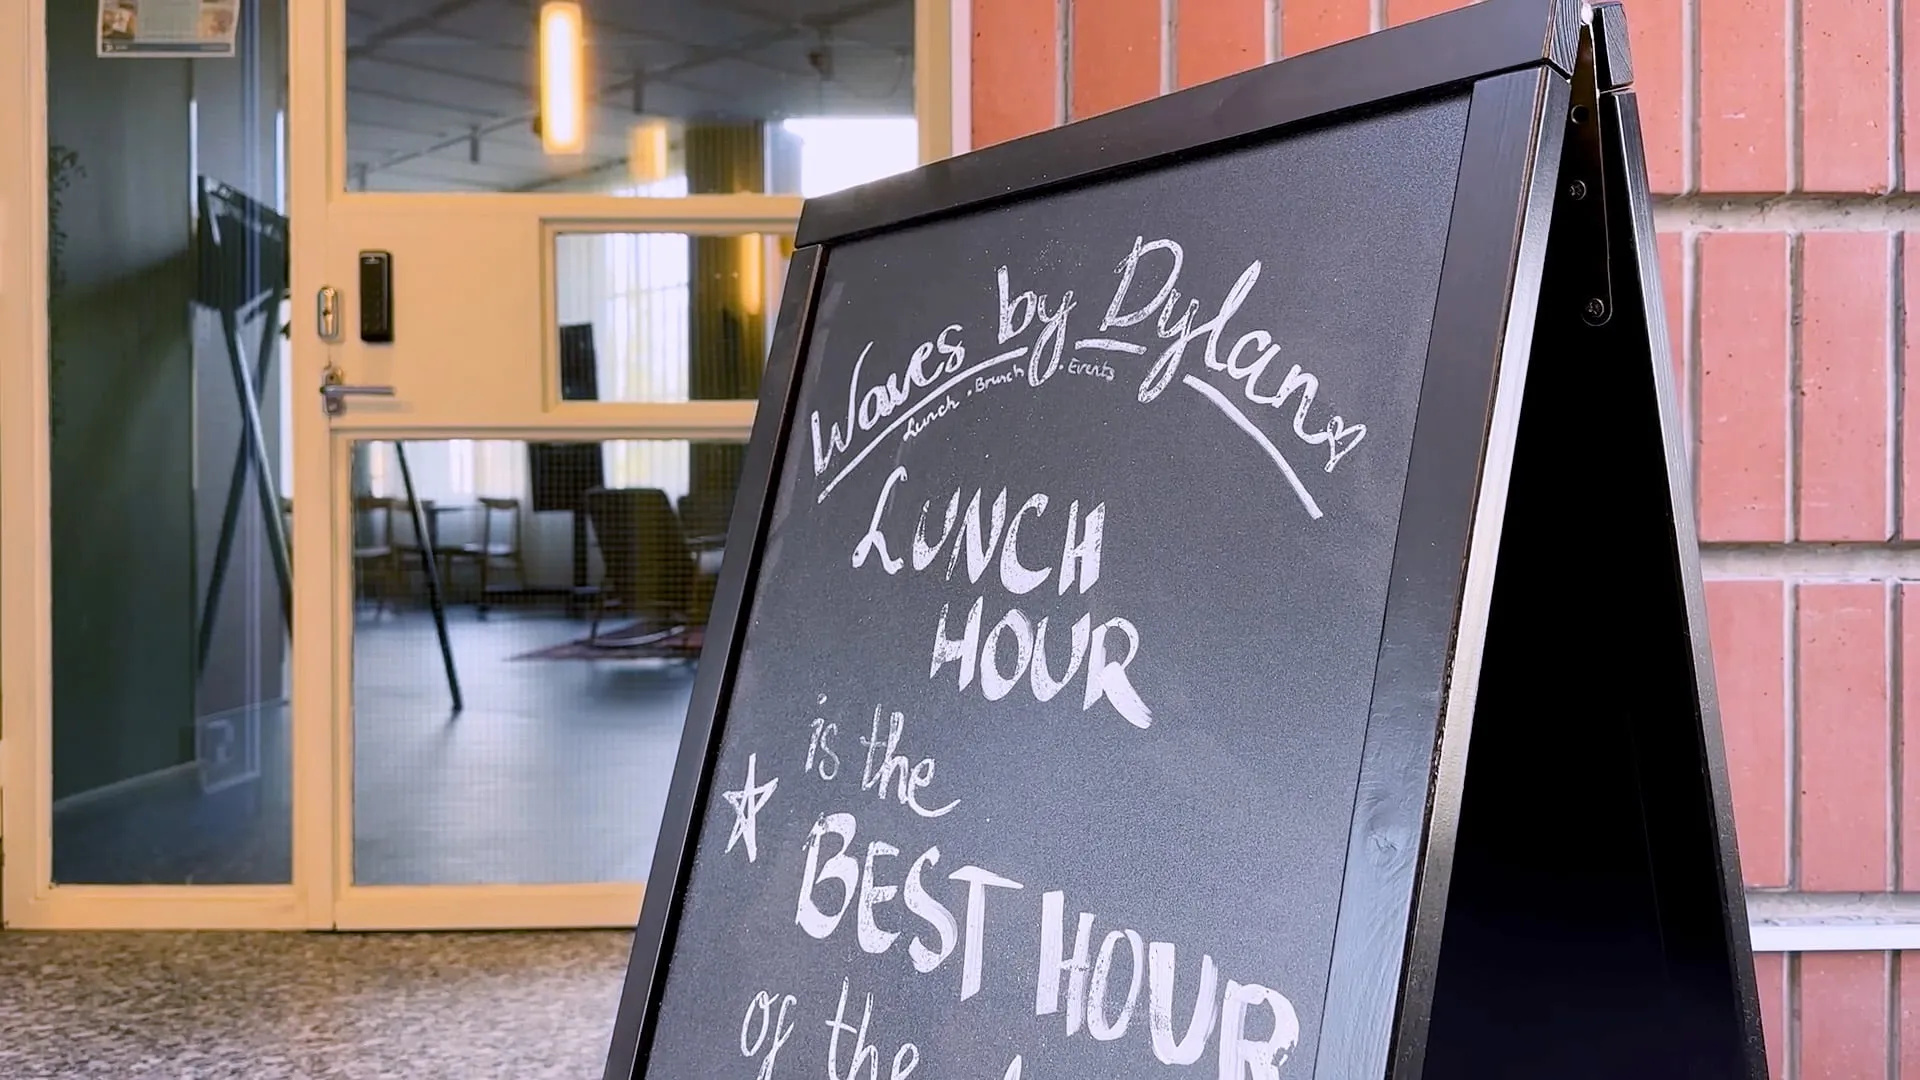 Waves by Dylan
Lunch • Brunch • Events
LUNCH
HOUR
is the
BEST HOUR
of the